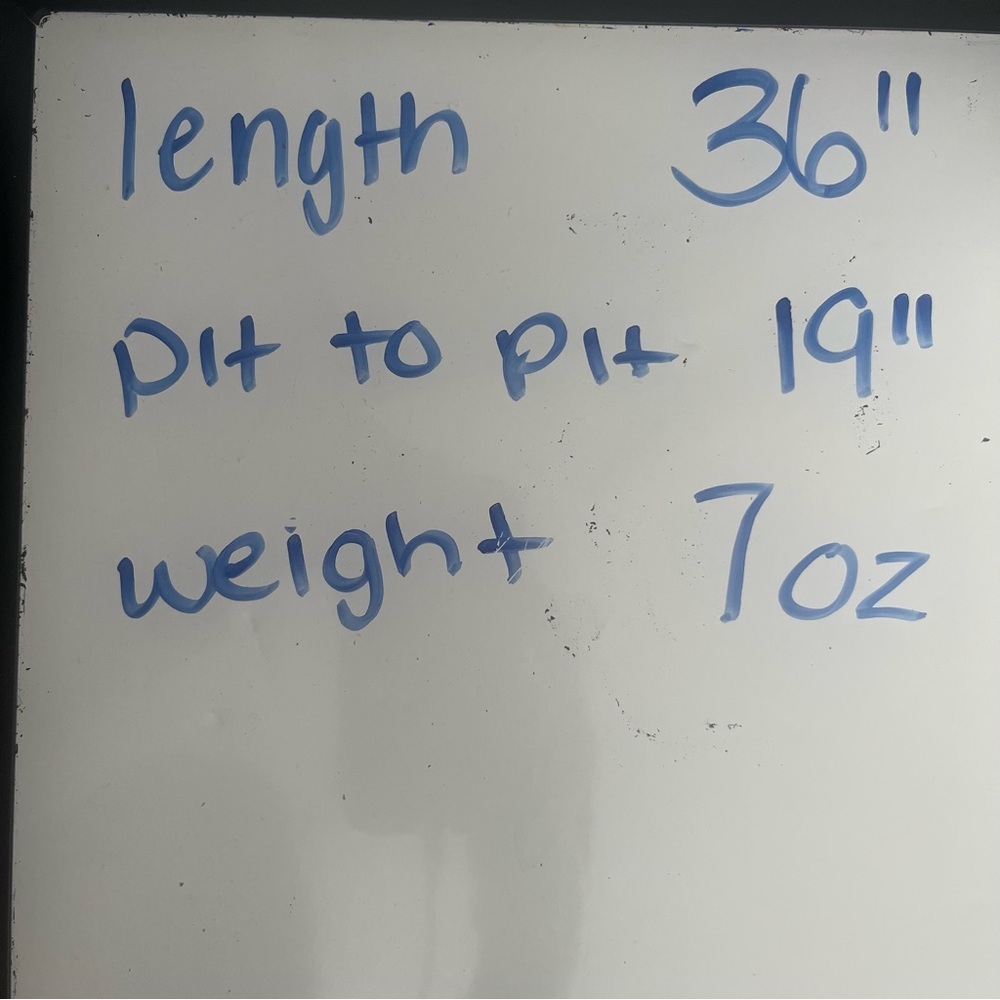 length 36"
pit to pit 19"
weight 7 oz